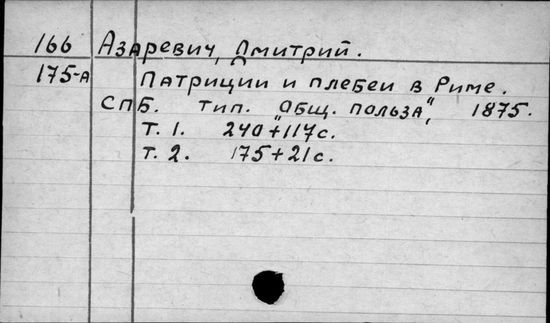 166 Азаревич, Дмитрий.
175-А Патриции и плебеи в Риме.
СПБ. тип. "Общ. польза", 1875.
Т. 1. 240+117с.
Т. 2. 175+21с.